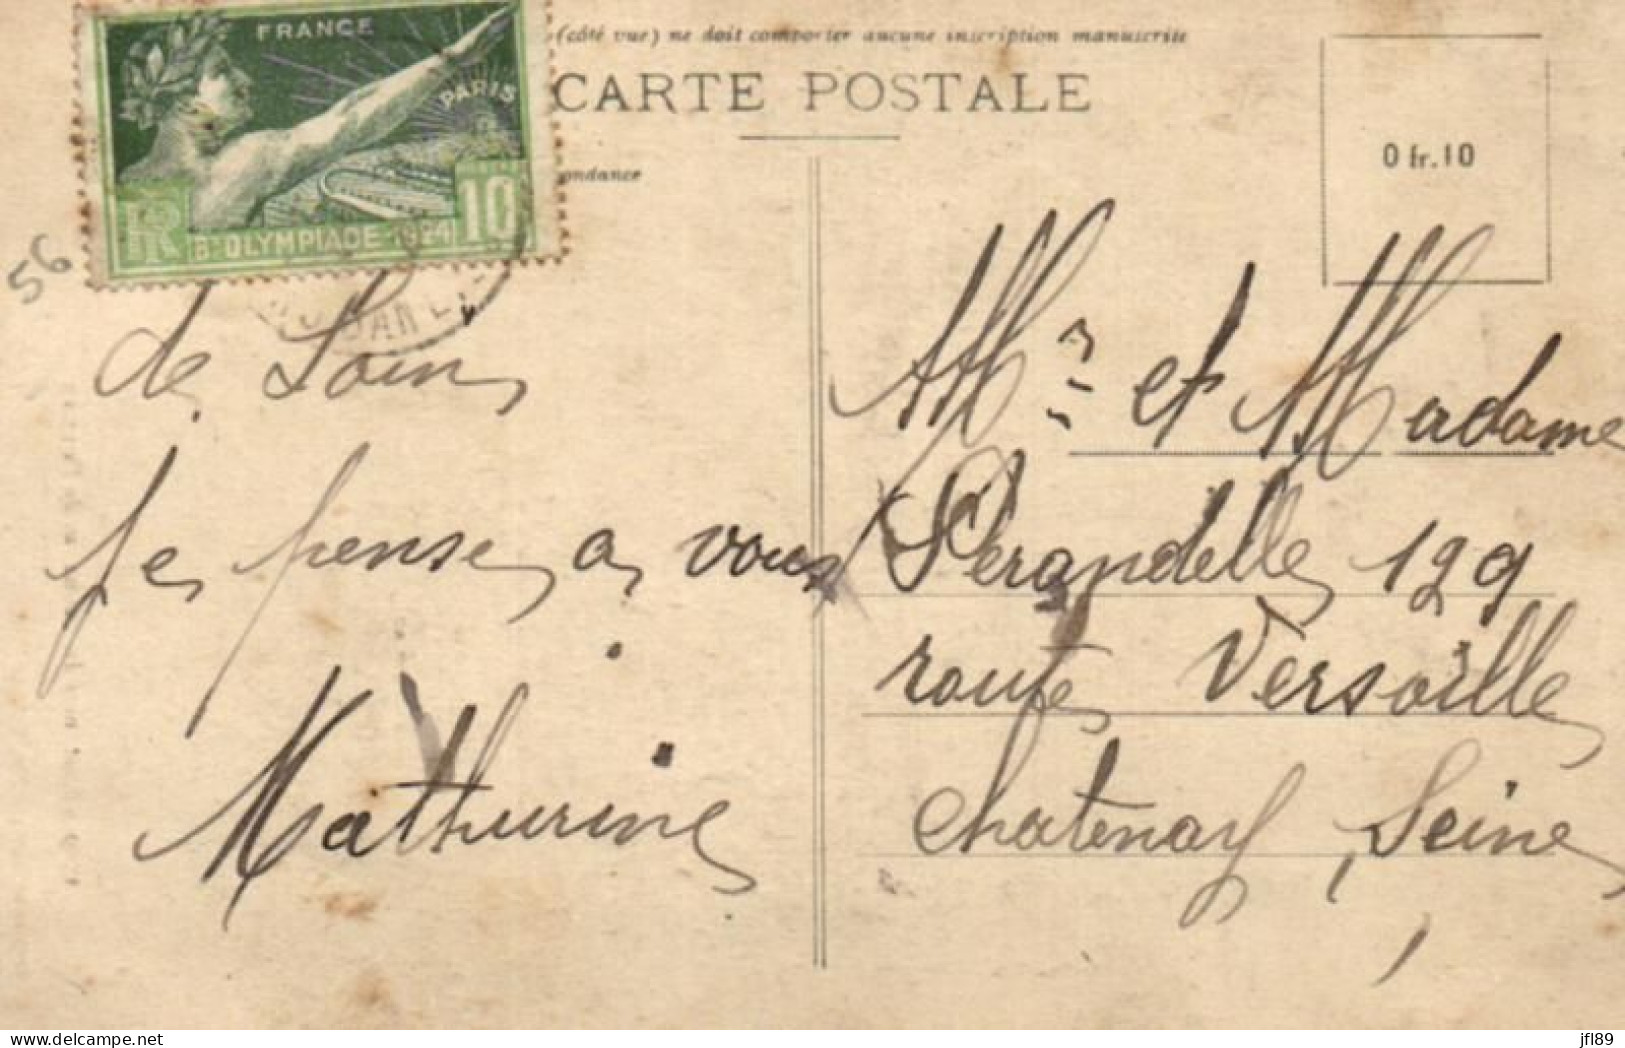 (côté vue) ne doit comporter aucune inscription manuscrite
CARTE POSTALE
ondance
FRANCE
PARIS
RF
8e OLYMPIADE 1924
10
0 fr. 10
56
de Loin
je pense a vous
Mathurine
Mr et Madame
Perandelle 129
route Versaille
Chatenay, Seine
delcampe.net
jfl89